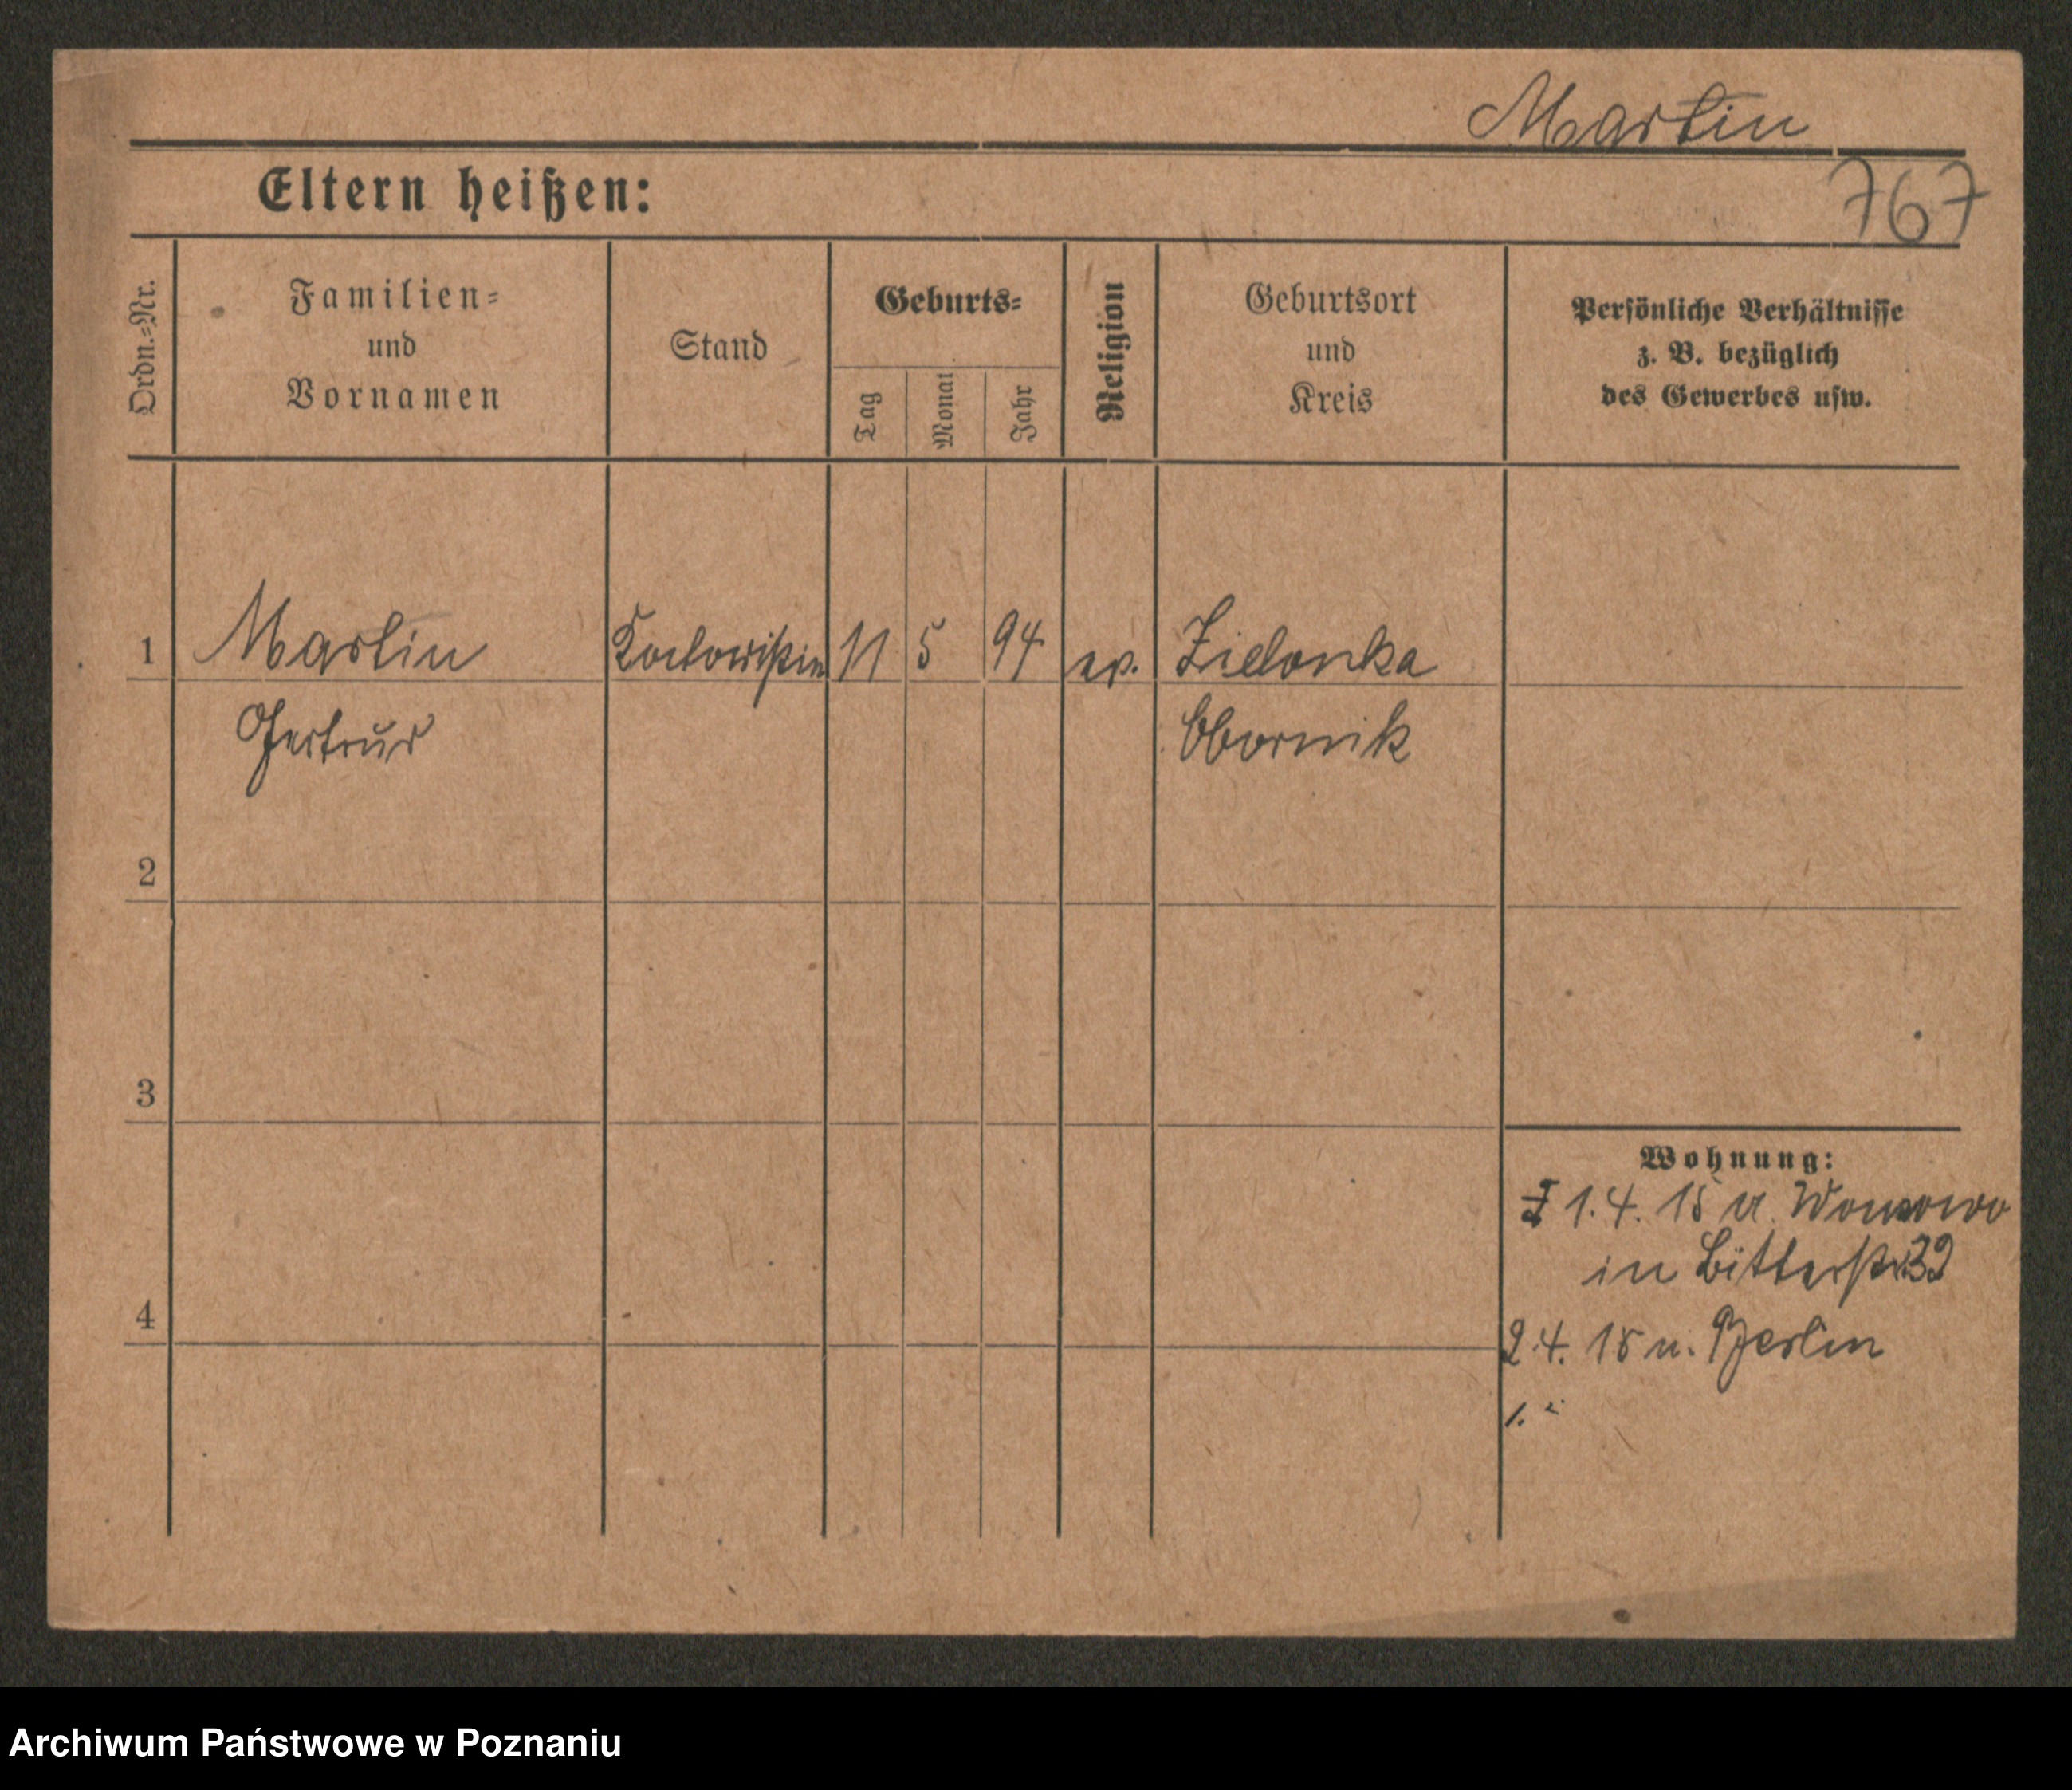 Martin
Eltern heißen:
767
Ordn.-Nr.
Familien-
und
Vornamen
Stand
Geburts-
Tag
Monat
Jahr
Religion
Geburtsort
und
Kreis
Persönliche Verhältnisse
z. B. bezüglich
des Gewerbes usw.
1 Martin 11 5 94 ev. Zielonka
Gertrud Obornik
2
3
4
Wohnung:
1. 4. 18 v.
in Bitterstr 39
2 4. 18 n. Berlin
Archiwum Państwowe w Poznaniu